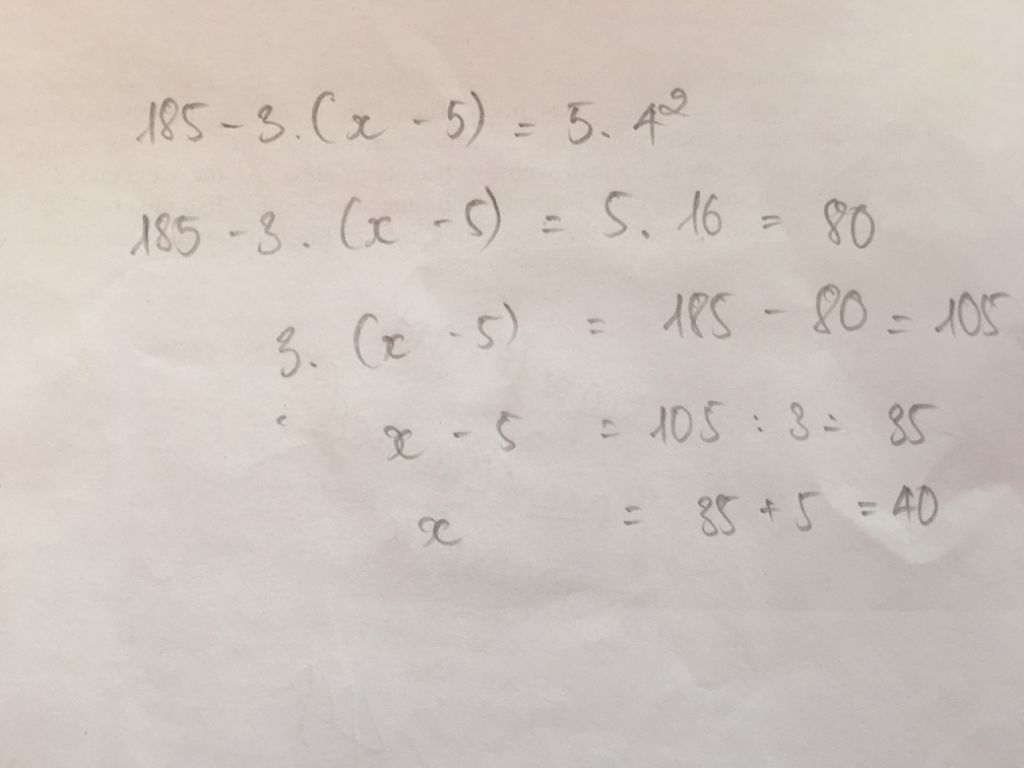 185 - 3. (x - 5) = 5. 4²
185 - 3. (x - 5) = 5. 16 = 80
3. (x - 5) = 185 - 80 = 105
x - 5 = 105 : 3 = 35
x = 35 + 5 = 40